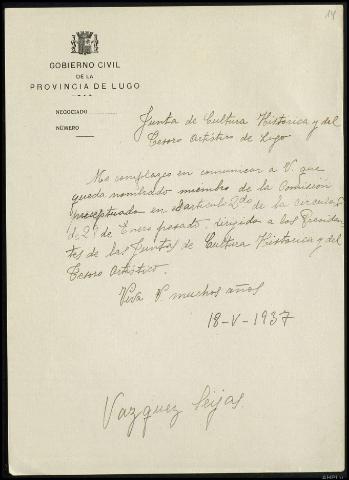 14
GOBIERNO CIVIL
DE LA
PROVINCIA DE LUGO
NEGOCIADO
NÚMERO
Junta de Cultura Historica y del
Tesoro Artístico de Lugo
Me complazco en comunicar a V. que
queda nombrado miembro de la Comisión
preceptuada en el articulo 2do de la circular
de 2 de Enero pasado, dirigido a los Presiden-
tes de las Juntas de Cultura Historica y del
Tesoro Artístico.
Viva V. muchos años
18-V-1937
Vazquez Seijas
AHPLU